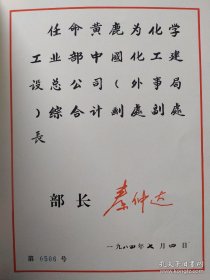 任命黄鹿为化学
工业部中國化工建
设总公司(外事局
)綜合计劃處副處
長
部长 秦仲达
一九八四年七月四日
第 0506 号